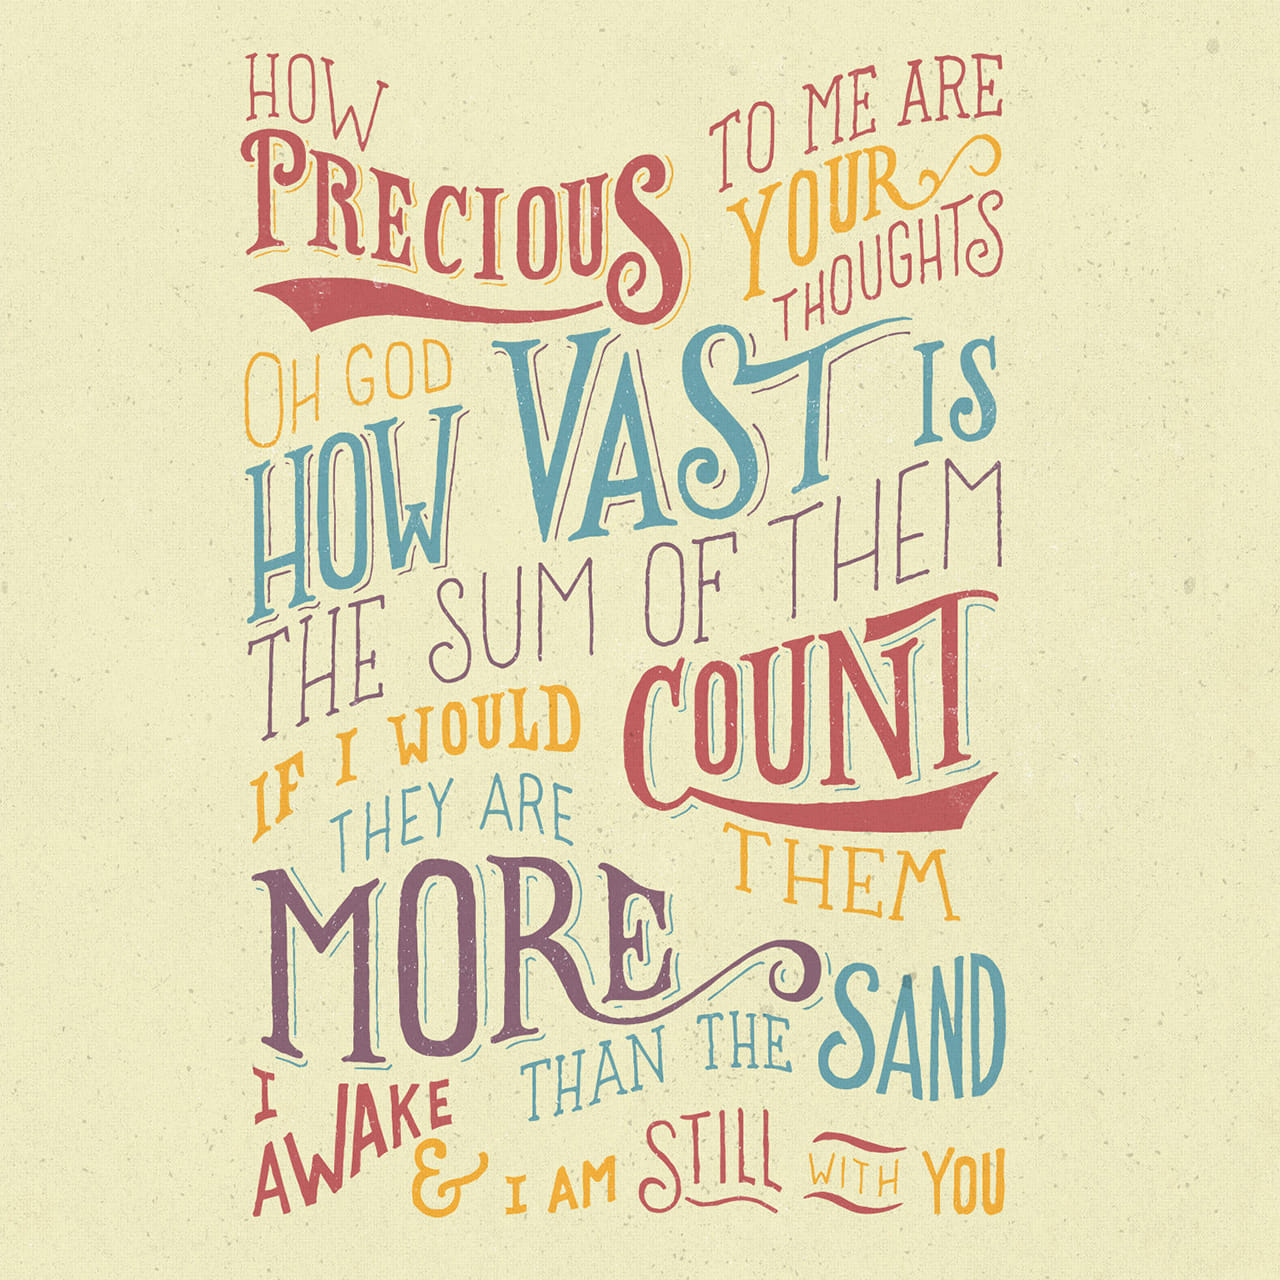 HOW
PRECIOUS
TO ME ARE
YOUR
THOUGHTS
OH GOD
HOW VAST IS
THE SUM OF THEM
IF I WOULD
COUNT
THEM
THEY ARE
MORE
THAN THE SAND
I
AWAKE
& I AM STILL WITH YOU